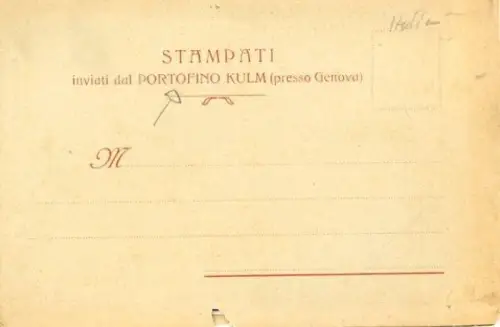 STAMPATI
inviati dal PORTOFINO KULM (presso Genova)
M